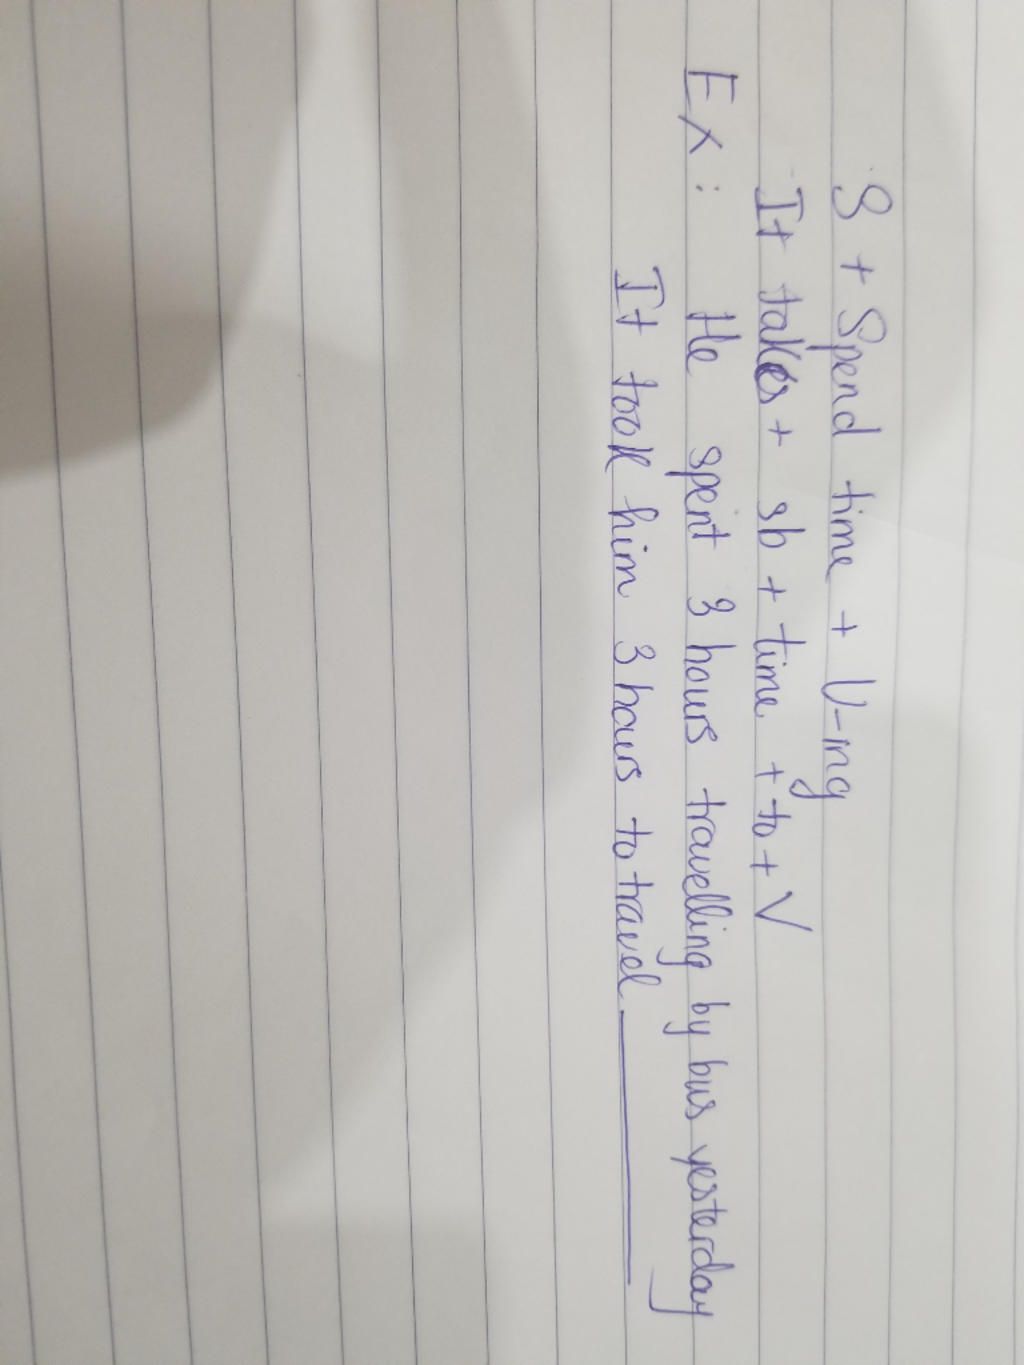 S + Spend time + V-ing
It takes + sb + time + to + V
Ex: He spent 3 hours travelling by bus yesterday
It took him 3 hours to travel